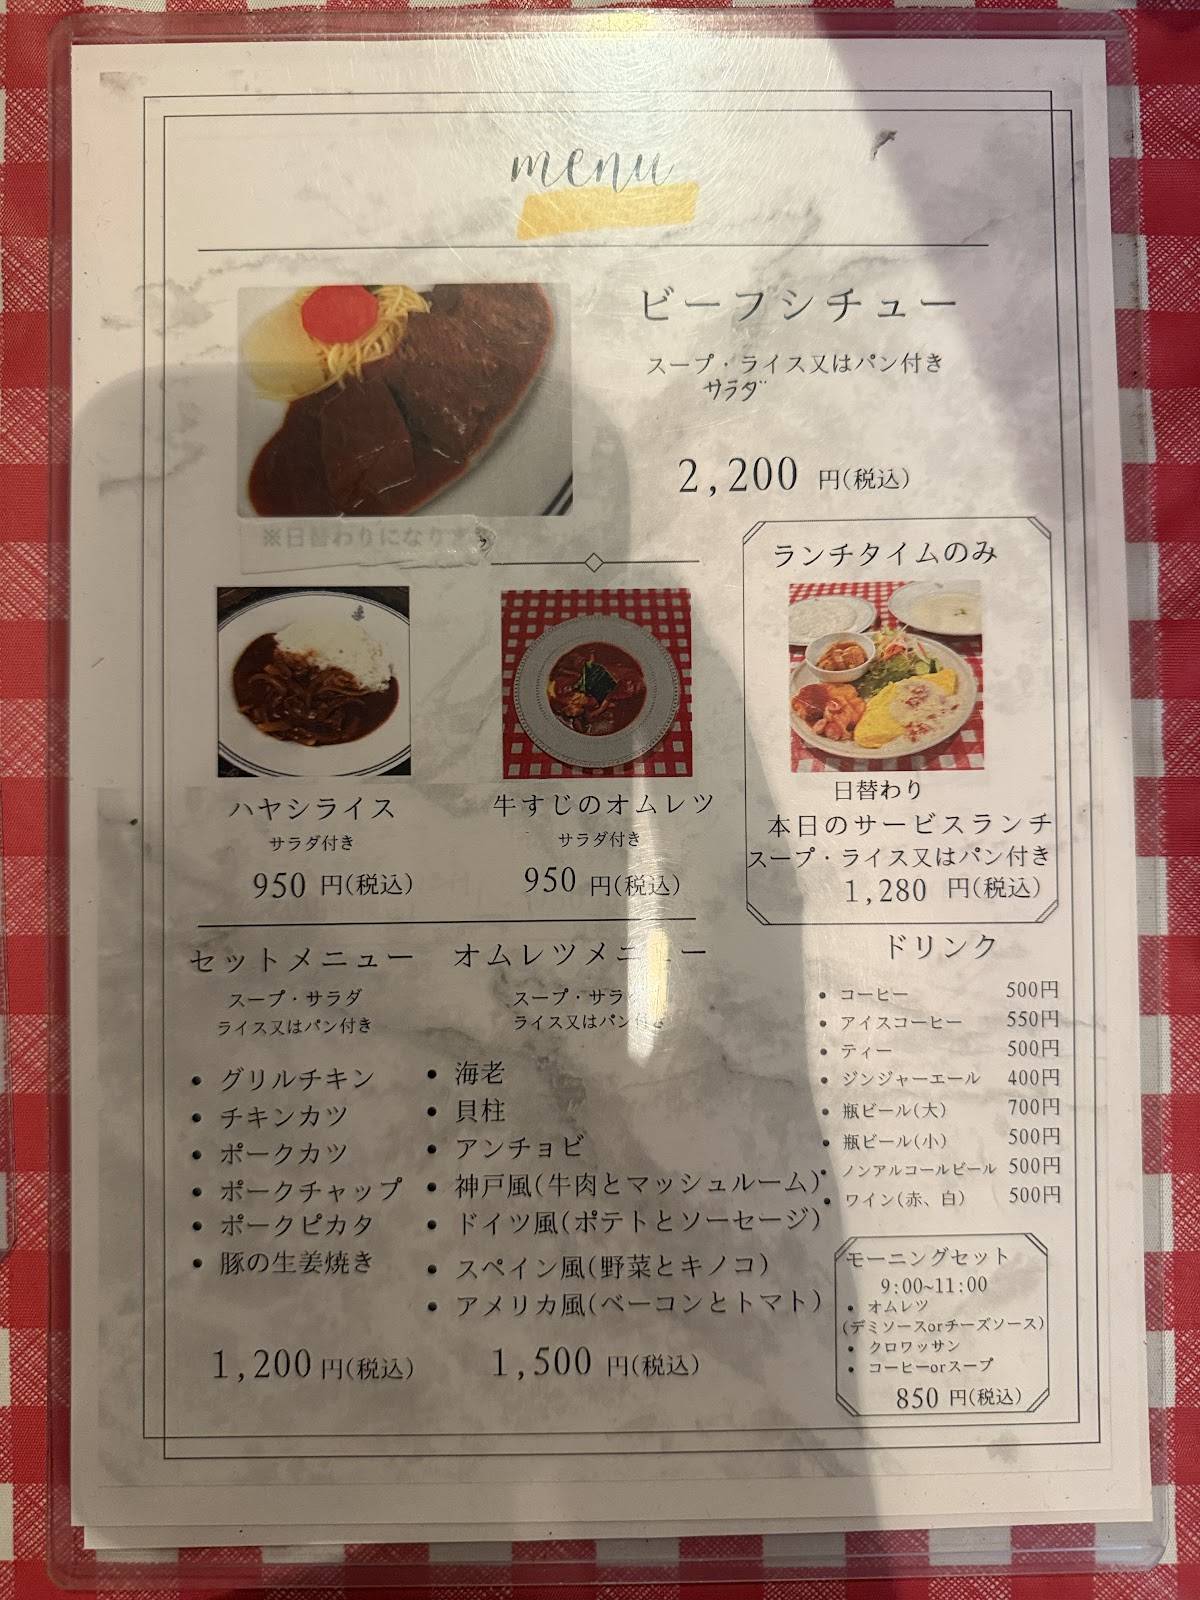 menu
ビーフシチュー
スープ・ライス又はパン付き
サラダ
2,200 円(税込)
※日替わりになります
ランチタイムのみ
日替わり
本日のサービスランチ
スープ・ライス又はパン付き
1,280 円(税込)
ハヤシライス
サラダ付き
950 円(税込)
牛すじのオムレツ
サラダ付き
950 円(税込)
セットメニュー
スープ・サラダ
ライス又はパン付き
• グリルチキン
• チキンカツ
• ポークカツ
• ポークチャップ
• ポークピカタ
• 豚の生姜焼き
1,200 円(税込)
オムレツメニュー
スープ・サラダ
ライス又はパン付き
• 海老
• 貝柱
• アンチョビ
• 神戸風(牛肉とマッシュルーム)
• ドイツ風(ポテトとソーセージ)
• スペイン風(野菜とキノコ)
• アメリカ風(ベーコンとトマト)
1,500 円(税込)
ドリンク
• コーヒー 500円
• アイスコーヒー 550円
• ティー 500円
• ジンジャーエール 400円
• 瓶ビール(大) 700円
• 瓶ビール(小) 500円
• ノンアルコールビール 500円
• ワイン(赤、白) 500円
モーニングセット
9:00~11:00
• オムレツ
(デミソースorチーズソース)
• クロワッサン
• コーヒーorスープ
850 円(税込)